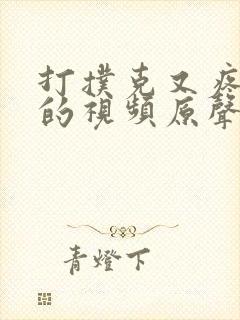 打撲克又疼
的視頻原聲
青燈下